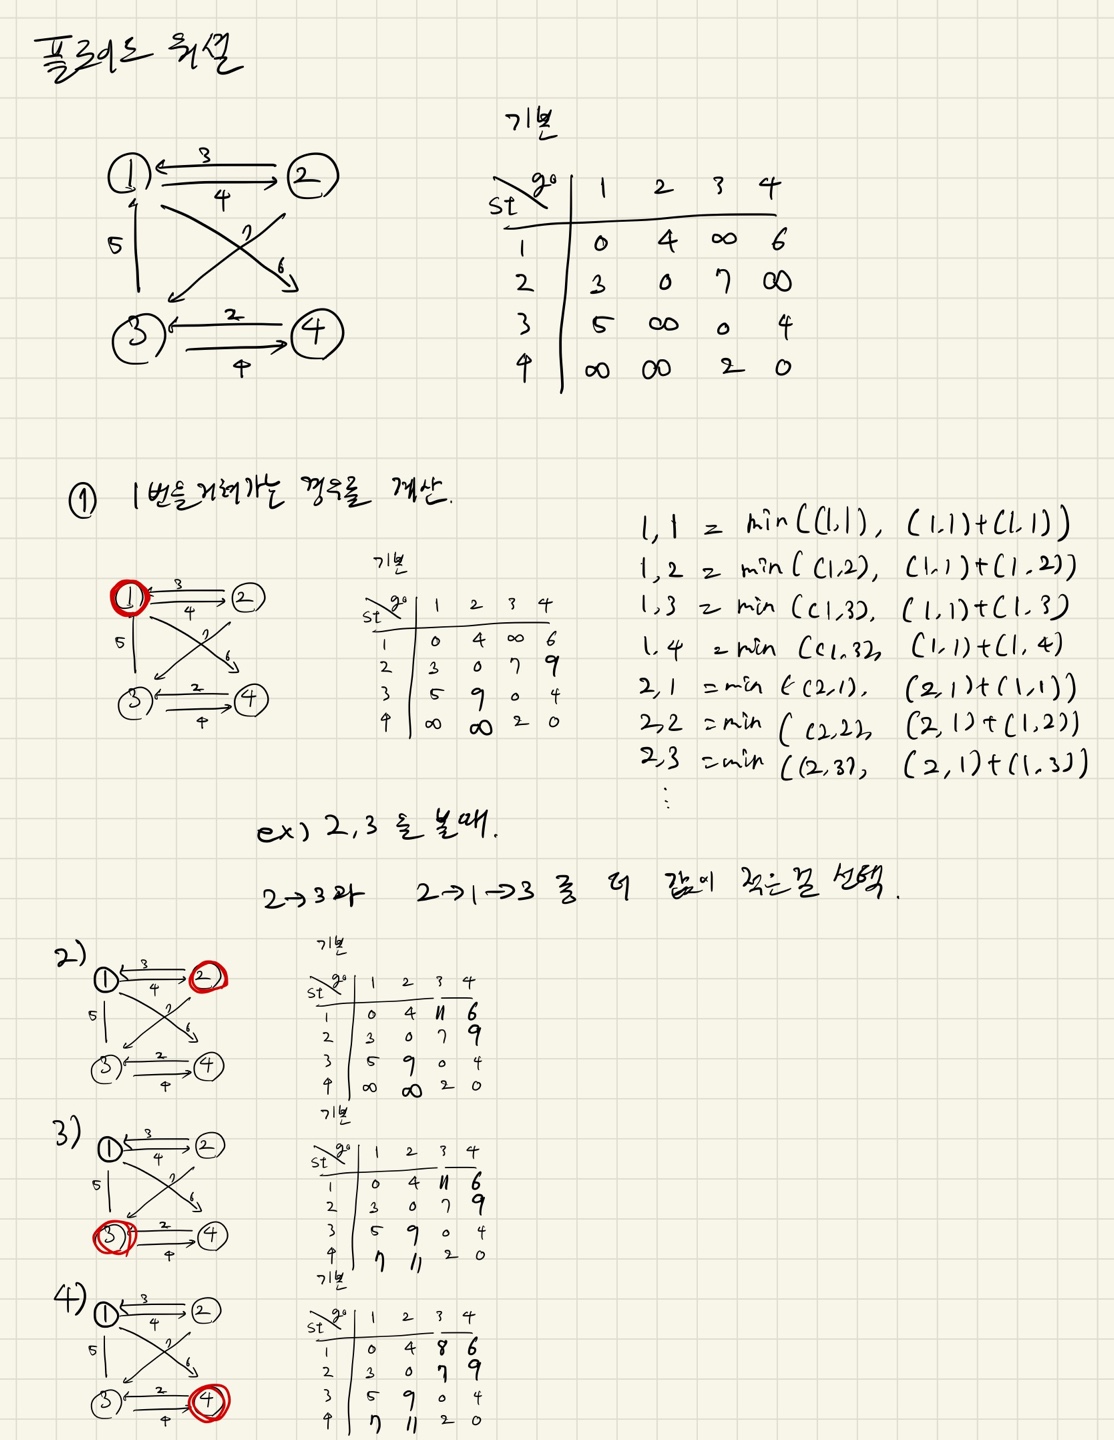 플로이드 워셜
기본
1 3 2
4
5 7 6
3 2 4
4
st go 1 2 3 4
1 0 4 ∞ 6
2 3 0 7 ∞
3 5 ∞ 0 4
4 ∞ ∞ 2 0
① 1번을 거쳐가는 경우를 계산.
1 3 2
4
5 7 6
3 2 4
4
기본
st go 1 2 3 4
1 0 4 ∞ 6
2 3 0 7 9
3 5 9 0 4
4 ∞ ∞ 2 0
1,1 = min((1,1), (1,1)+(1,1))
1,2 = min((1,2), (1,1)+(1,2))
1,3 = min((1,3), (1,1)+(1,3)
1,4 = min((1,3), (1,1)+(1,4)
2,1 = min((2,1), (2,1)+(1,1))
2,2 = min((2,2), (2,1)+(1,2))
2,3 = min((2,3), (2,1)+(1,3))
⋮
ex) 2,3 을 볼때.
2→3와 2→1→3 중 더 값이 적은걸 선택.
2)
1 3 2
4
5 7 6
3 2 4
4
기본
st go 1 2 3 4
1 0 4 11 6
2 3 0 7 9
3 5 9 0 4
4 ∞ ∞ 2 0
3)
1 3 2
4
5 7 6
3 2 4
4
기본
st go 1 2 3 4
1 0 4 11 6
2 3 0 7 9
3 5 9 0 4
4 7 11 2 0
4)
1 3 2
4
5 7 6
3 2 4
4
기본
st go 1 2 3 4
1 0 4 8 6
2 3 0 7 9
3 5 9 0 4
4 7 11 2 0